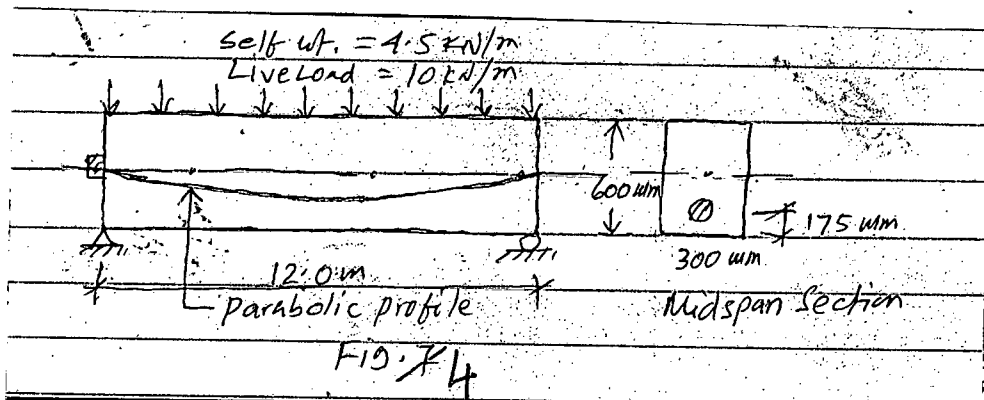 self wt. = 4.5 kN/m
Live Load = 10 kN/m
600 mm
175 mm
300 mm
12.0 m
parabolic profile
Midspan Section
FIG. 4